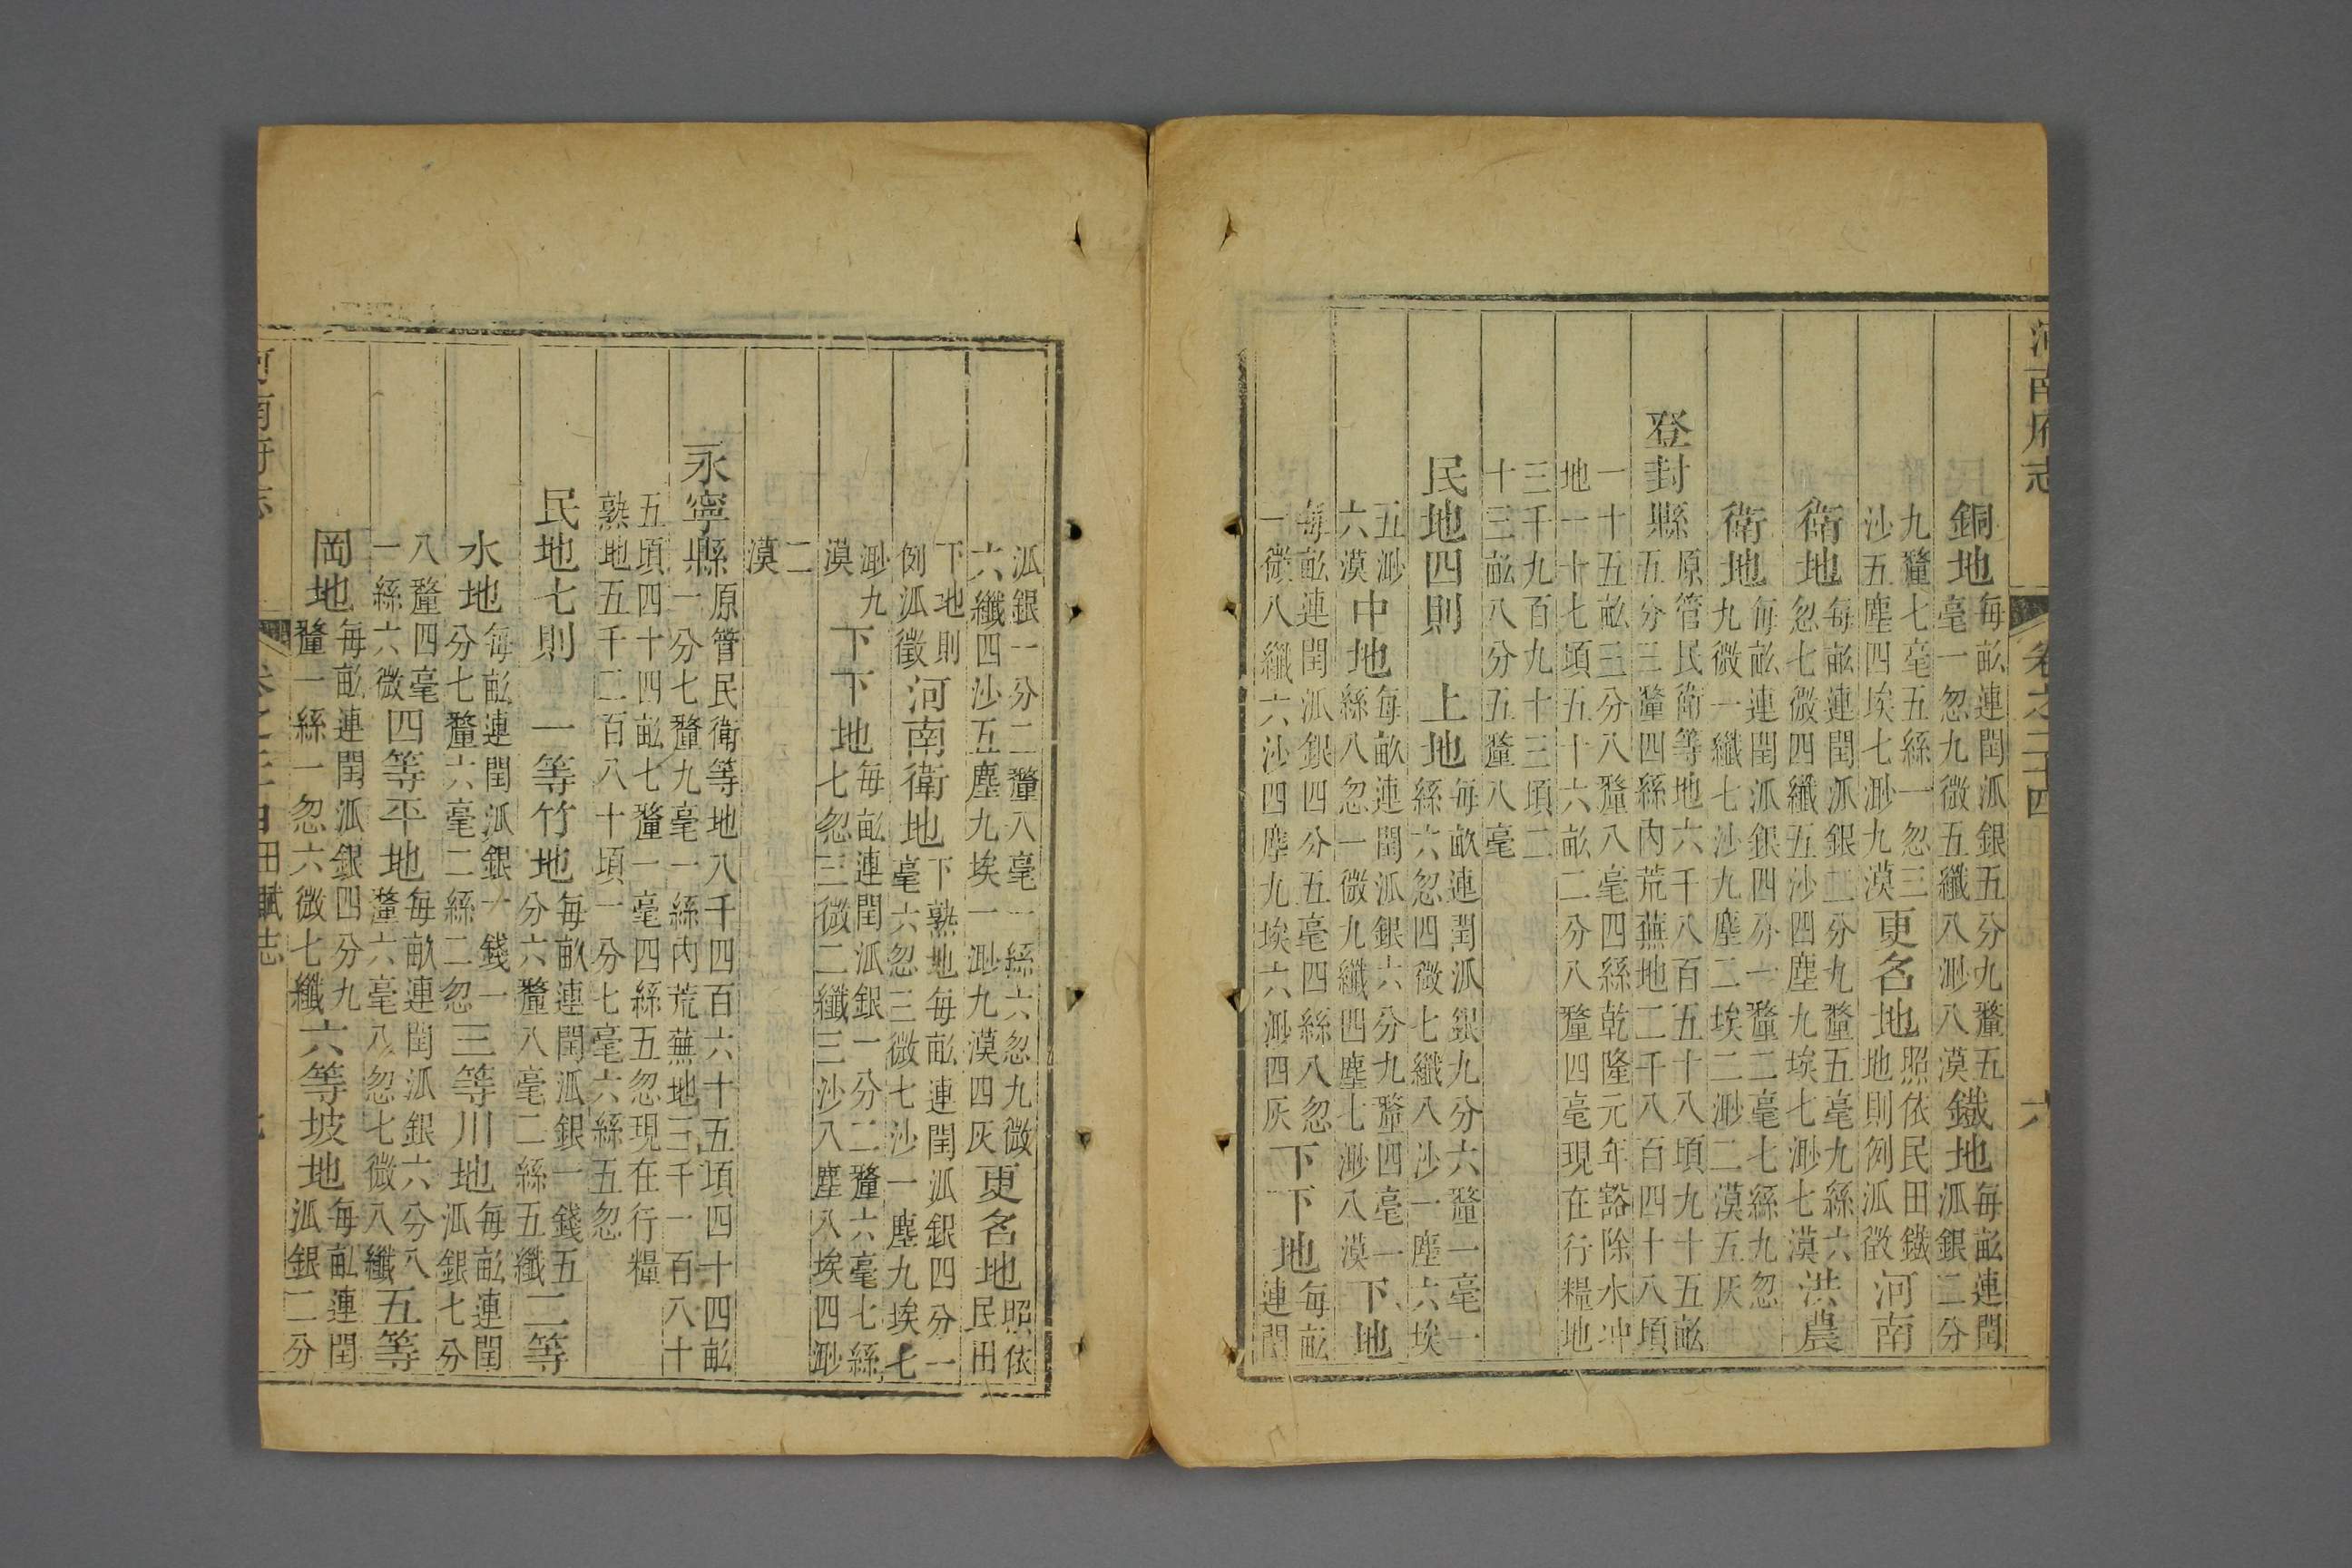 河南府志 卷之二十四 六
銅地 每畝連閏派銀五分九釐五
毫一忽九微五纖八渺八漠
鐵地 每畝連閏
派銀二分
九釐七毫五絲一忽三
沙五塵四埃七渺九漠
更名地 照依民田鐵
地則例派徵
河南
衛地 每畝連閏派銀二分九釐五毫九絲六
忽七微四纖五沙四塵九埃七渺七漠
洪農
衛地 每畝連閏派銀四分一釐二毫七絲九忽
九微一纖七沙九塵二埃二渺二漠五灰
登封縣 原管民衛等地六千八百五十八頃九十五畝
五分三釐四絲內荒蕪地二千八百四十八頃
一十五畝三分八釐八毫四絲乾隆元年豁除水冲
地一十七頃五十六畝二分八釐四毫現在行糧地
三千九百九十三頃二
十三畝八分五釐八毫
民地四則 上地 每畝連閏派銀九分六釐一毫一
絲六忽四微七纖八沙一塵六埃
五渺
六漠
中地 每畝連閏派銀六分九釐四毫一
絲八忽一微九纖四塵七渺八漠
下地
每畝連閏派銀四分五毫四絲八忽
一微八纖六沙四塵九埃六渺四灰
下下地 每畝
連閏
派銀一分二釐八毫一絲六忽九微
六纖四沙五塵九埃一渺九漠四灰
更名地 照依
民田
下地則
例派徵
河南衛地 下熟地每畝連閏派銀四分一
毫六忽三微七沙一塵九埃七
渺九
漠
下下地 每畝連閏派銀一分二釐六毫七絲
七忽三微二纖三沙八塵八埃四渺
二
漠
永寧縣 原管民衛等地八千四百六十五頃四十四畝
一分七釐九毫一絲內荒蕪地三千一百八十
五頃四十四畝七釐一毫四絲五忽現在行糧
熟地五千二百八十頃一分七毫六絲五忽
民地七則 一等竹地 每畝連閏派銀一錢五
分六釐八毫二絲五纖
二等
水地 每畝連閏派銀一錢一
分七釐六毫二絲二忽
三等川地 每畝連閏
派銀七分
八釐四毫
一絲六微
四等平地 每畝連閏派銀六分八
釐六毫八忽七微八纖
五等
岡地 每畝連閏派銀四分九
釐一絲一忽六微七纖
六等坡地 每畝連閏
派銀二分
河南府志 田賦志